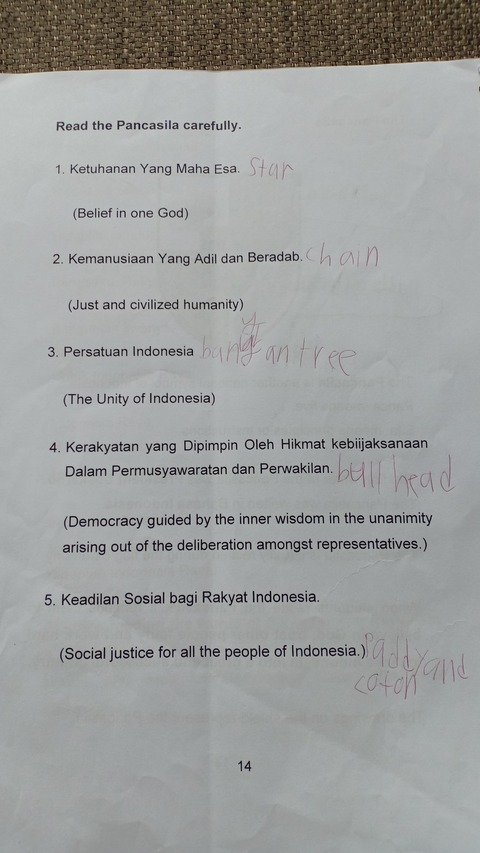 Read the Pancasila carefully.
1. Ketuhanan Yang Maha Esa. Star
(Belief in one God)
2. Kemanusiaan Yang Adil dan Beradab. Chain
(Just and civilized humanity)
3. Persatuan Indonesia banyan tree
(The Unity of Indonesia)
4. Kerakyatan yang Dipimpin Oleh Hikmat kebiijaksanaan
Dalam Permusyawaratan dan Perwakilan. bull head
(Democracy guided by the inner wisdom in the unanimity
arising out of the deliberation amongst representatives.)
5. Keadilan Sosial bagi Rakyat Indonesia.
(Social justice for all the people of Indonesia.) Paddy and
coton
14